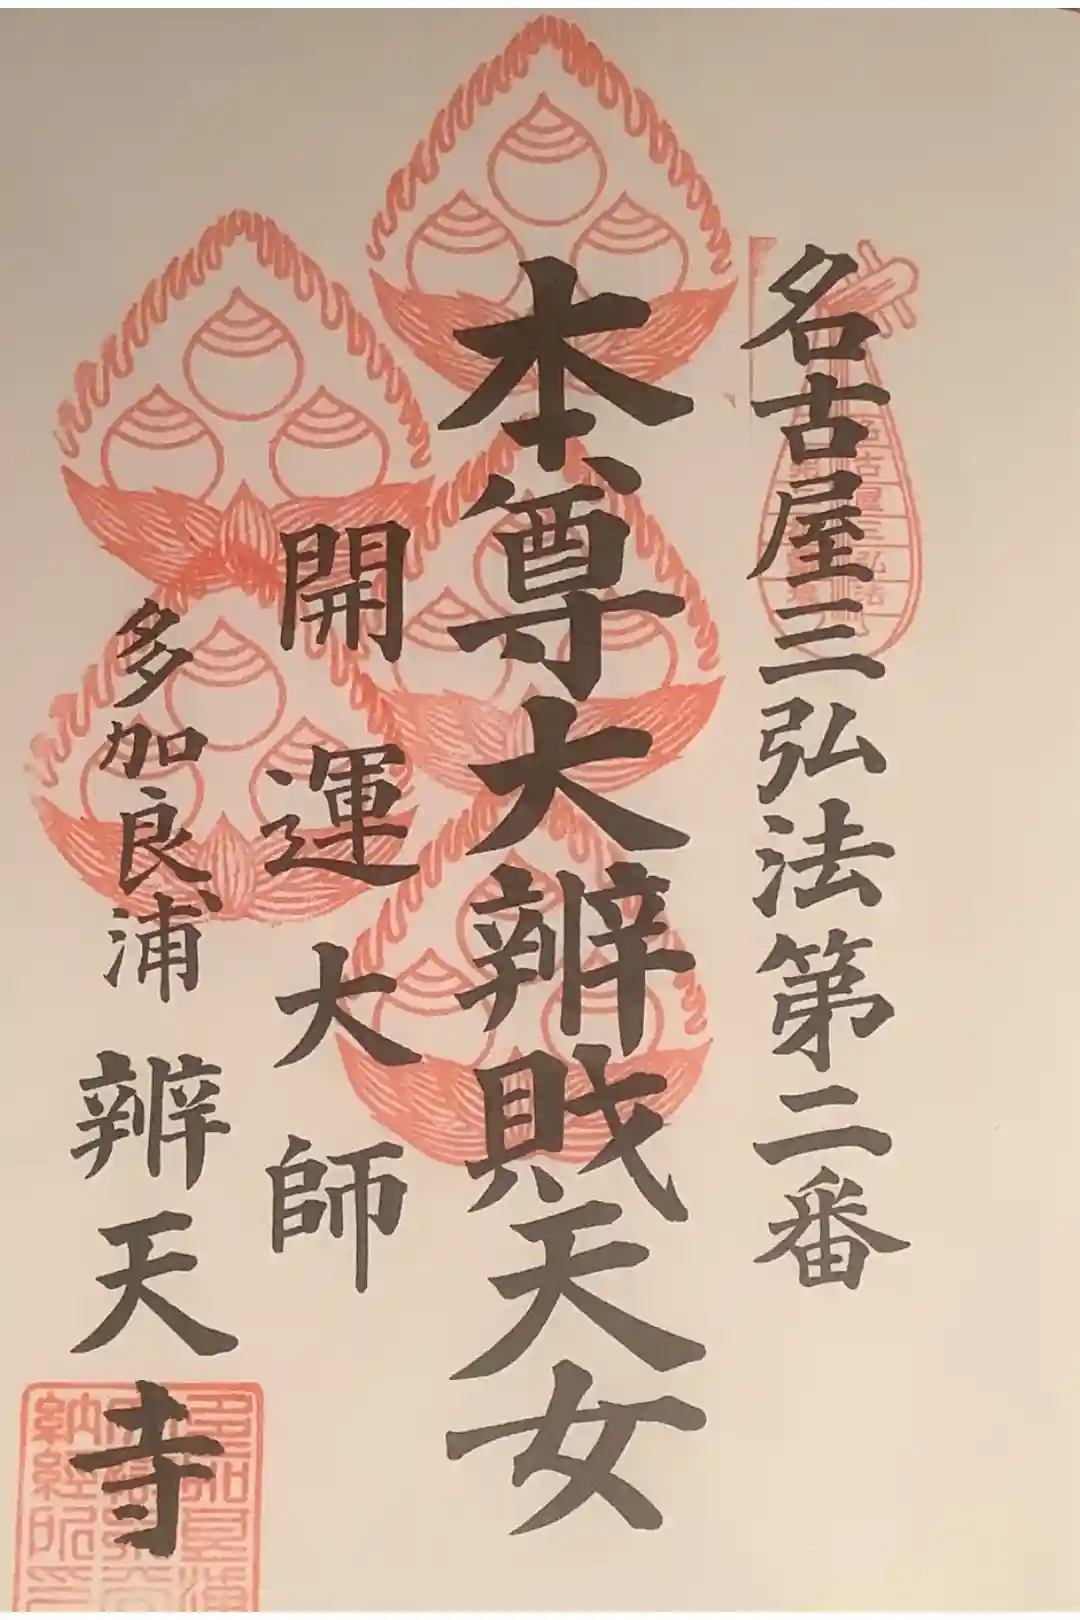 名古屋三弘法第二番
本尊大辨財天女
開運大師
多加良浦 辨天寺
納経所